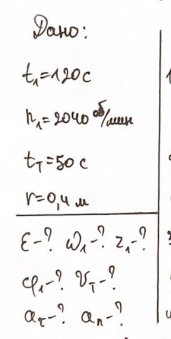 Дано:
t₁=120 с
n₁=2040 об/мин
t_T=50 с
r=0,4 м
ε-? ω₁-? z₁-?
φ₁-? v_T-?
a_τ-? a_n-?